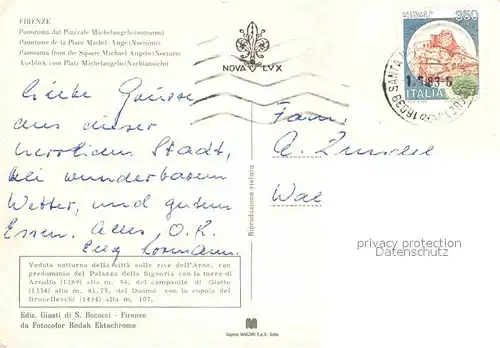 FIRENZE
Panorama dal Piazzale Michelangelo (notturno)
Panorama de la Place Michel-Ange (Nocturne)
Panorama from the Square Michael Angelo (Nocturn)
Ausblick von Platz Michelangelo (Nachtansicht)
NOVA LVX
350
ITALIA
Liebe Grüsse
aus dieser
herrlichen Stadt,
bei wunderbarem
Wetter, und gutem
Essen. Alles O.K.
Fam.
A.
Riproduzione vietata
privacy protection
watermark
Veduta notturna della città sulle rive dell'Arno, con
predominio del Palazzo della Signoria con la torre di
Arnolfo (1289) alta m. 94, del campanile di Giotto
(1334) alto m. 81,75, del Duomo con la cupola del
Brunelleschi (1434) alta m. 107.
Ediz. Giusti di S. Becocci - Firenze
da Fotocolor Kodak Ektachrome